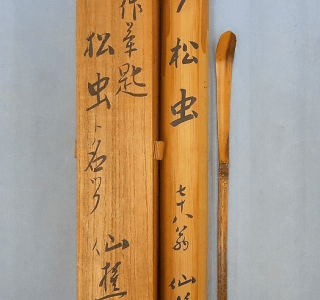 作茶匙
松虫
ト名ツク
仙樵
松虫
七十八翁
仙